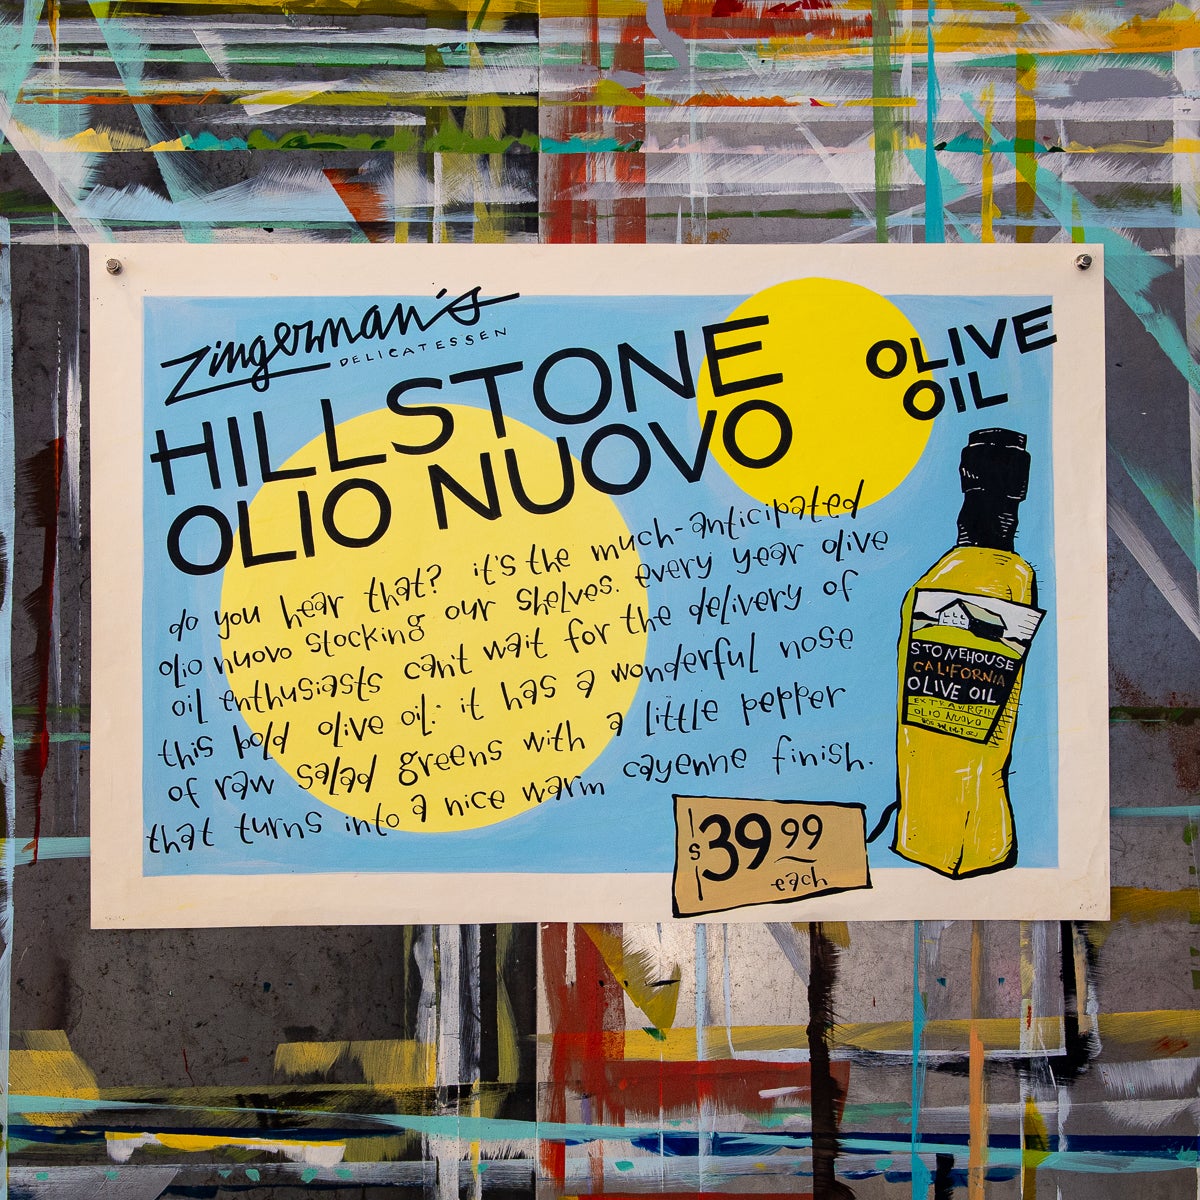 Zingerman's
DELICATESSEN
HILLSTONE
OLIO NUOVO
OLIVE
OIL
do you hear that? it's the much-anticipated
olio nuovo stocking our shelves. every year olive
oil enthusiasts can't wait for the delivery of
this bold olive oil: it has a wonderful nose
of raw salad greens with a little pepper
that turns into a nice warm cayenne finish.
STONEHOUSE
CALIFORNIA
OLIVE OIL
EXTRA VIRGIN
OLIO NUOVO
$39 99
each